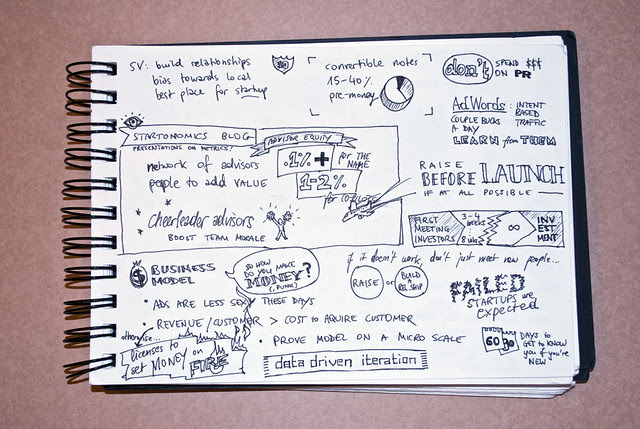 SV: build relationships
bias towards local
best place for startup
convertible notes
15-40%
pre-money
don't
SPEND $$$
ON PR
AdWords: INTENT
BASED
TRAFFIC
COUPLE BUCKS
A DAY
LEARN from THEM
STARTONOMICS BLOG
PRESENTATIONS ON METRICS!
network of advisors
people to add VALUE
* cheerleader advisors
BOOST TEAM MORALE
ADVISOR EQUITY
.1% + FOR THE
NAME
1-2%
for COPILOTS
RAISE
BEFORE LAUNCH
IF AT ALL POSSIBLE
FIRST
MEETING
INVESTORS
3-4
weeks
8 wks
∞
INV
EST
MENT
if it doesn't work, don't just meet new people...
RAISE or BUILD
A REL.SHIP
FAILED
STARTUPS are
expected
60 90 DAYS TO
GET TO KNOW
YOU if YOU'RE
NEW
$ BUSINESS
MODEL
SO HOW
DO YOU MAKE
MONEY?
(, PUNK)
• ADS ARE LESS SEXY THESE DAYS
• REVENUE/CUSTOMER > COST to AQUIRE CUSTOMER
otherwise...
licenses to
set MONEY on
FIRE
• PROVE MODEL ON A MICRO SCALE
data driven iteration